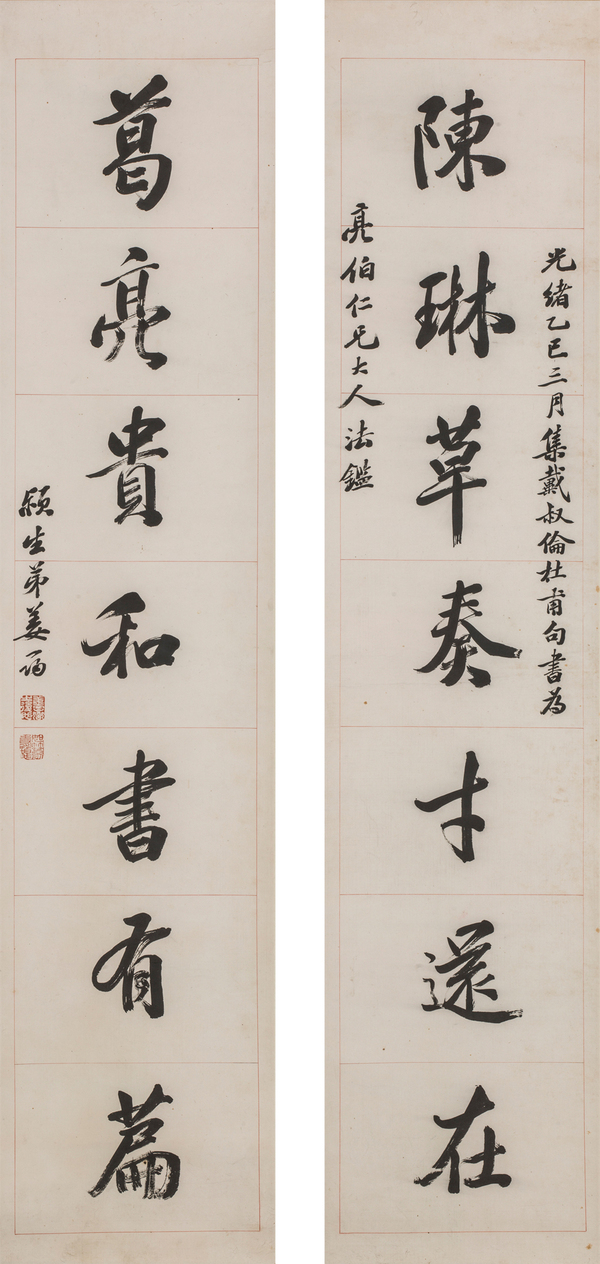 光緒乙巳三月集戴叔倫杜甫句書為
陳琳草奏才還在
亮伯仁兄大人法鑑
葛亮貴和書有篇
穎生弟姜筠